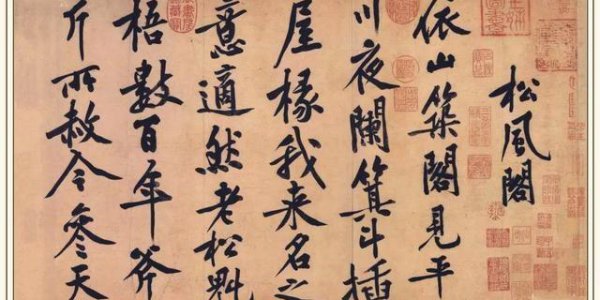 松風閣
依山築閣見平
川夜闌箕斗插
屋椽我来名之
意適然老松魁
梧數百年斧
斤所赦今參天